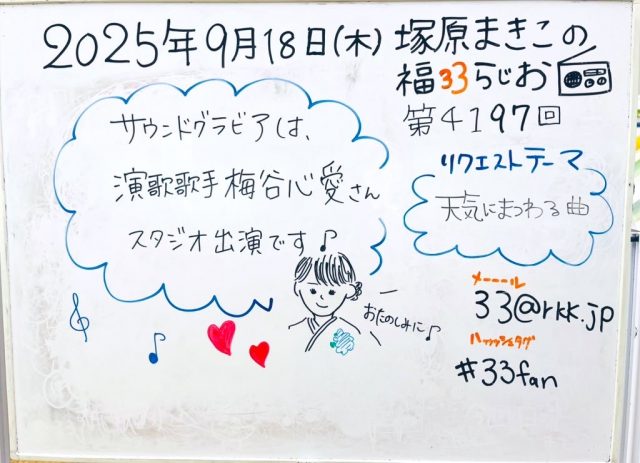 2025年9月18日(木) 塚原まきこの
福33らじお
第4197回
サウンドグラビアは、
演歌歌手梅谷心愛さん
スタジオ出演です♪
おたのしみに♪
リクエストテーマ
天気にまつわる曲
メーーール
33@rkk.jp
ハッッシュタグ
#33fan